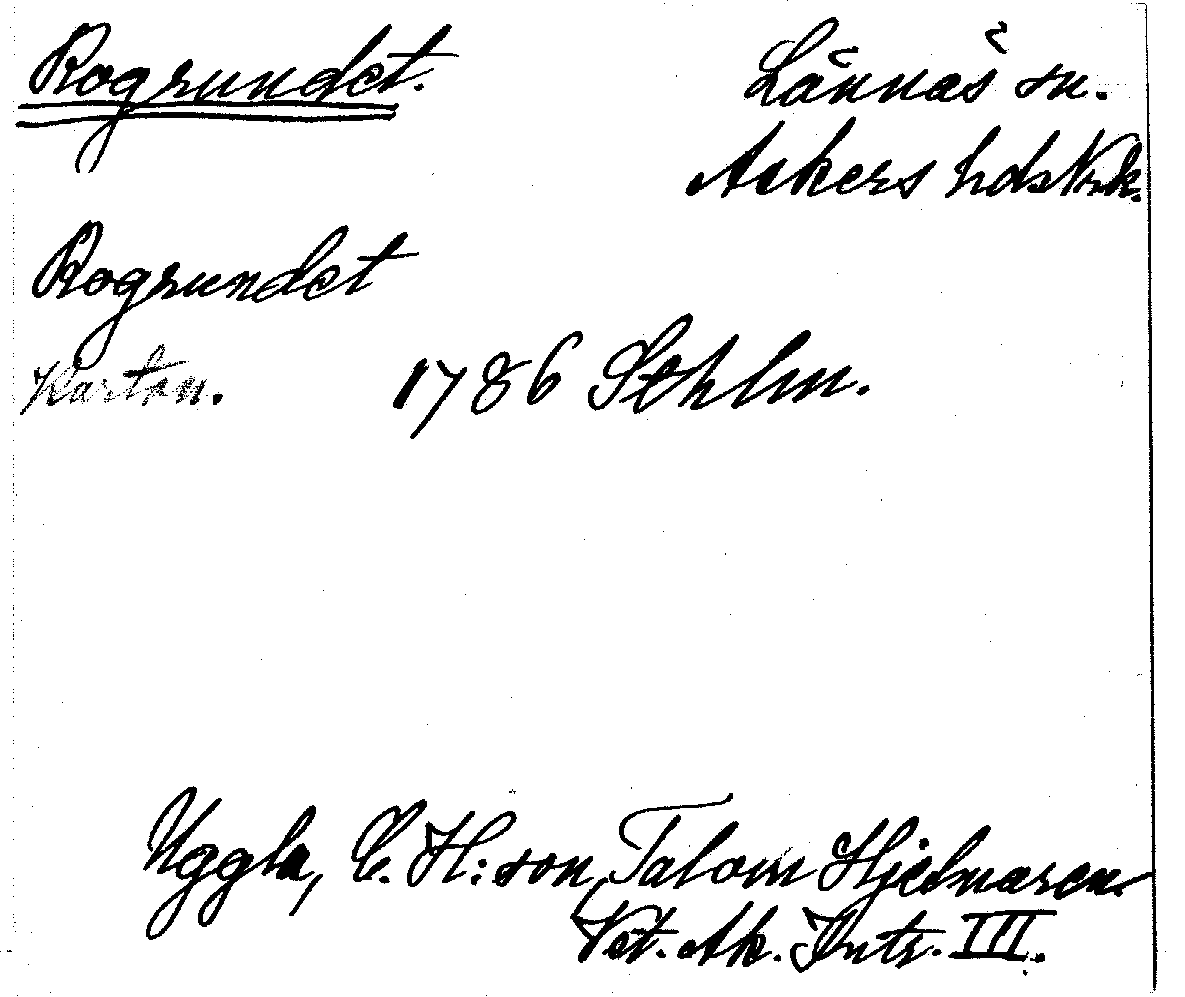 Rogrundet. Lännäs sn.
Askers hds Nrk.
Rogrundet
Kartan. 1786 Sthlm.
Uggla, C. H:son, Tal om Hjelmaren.
Vet. Ak. Intr. III.